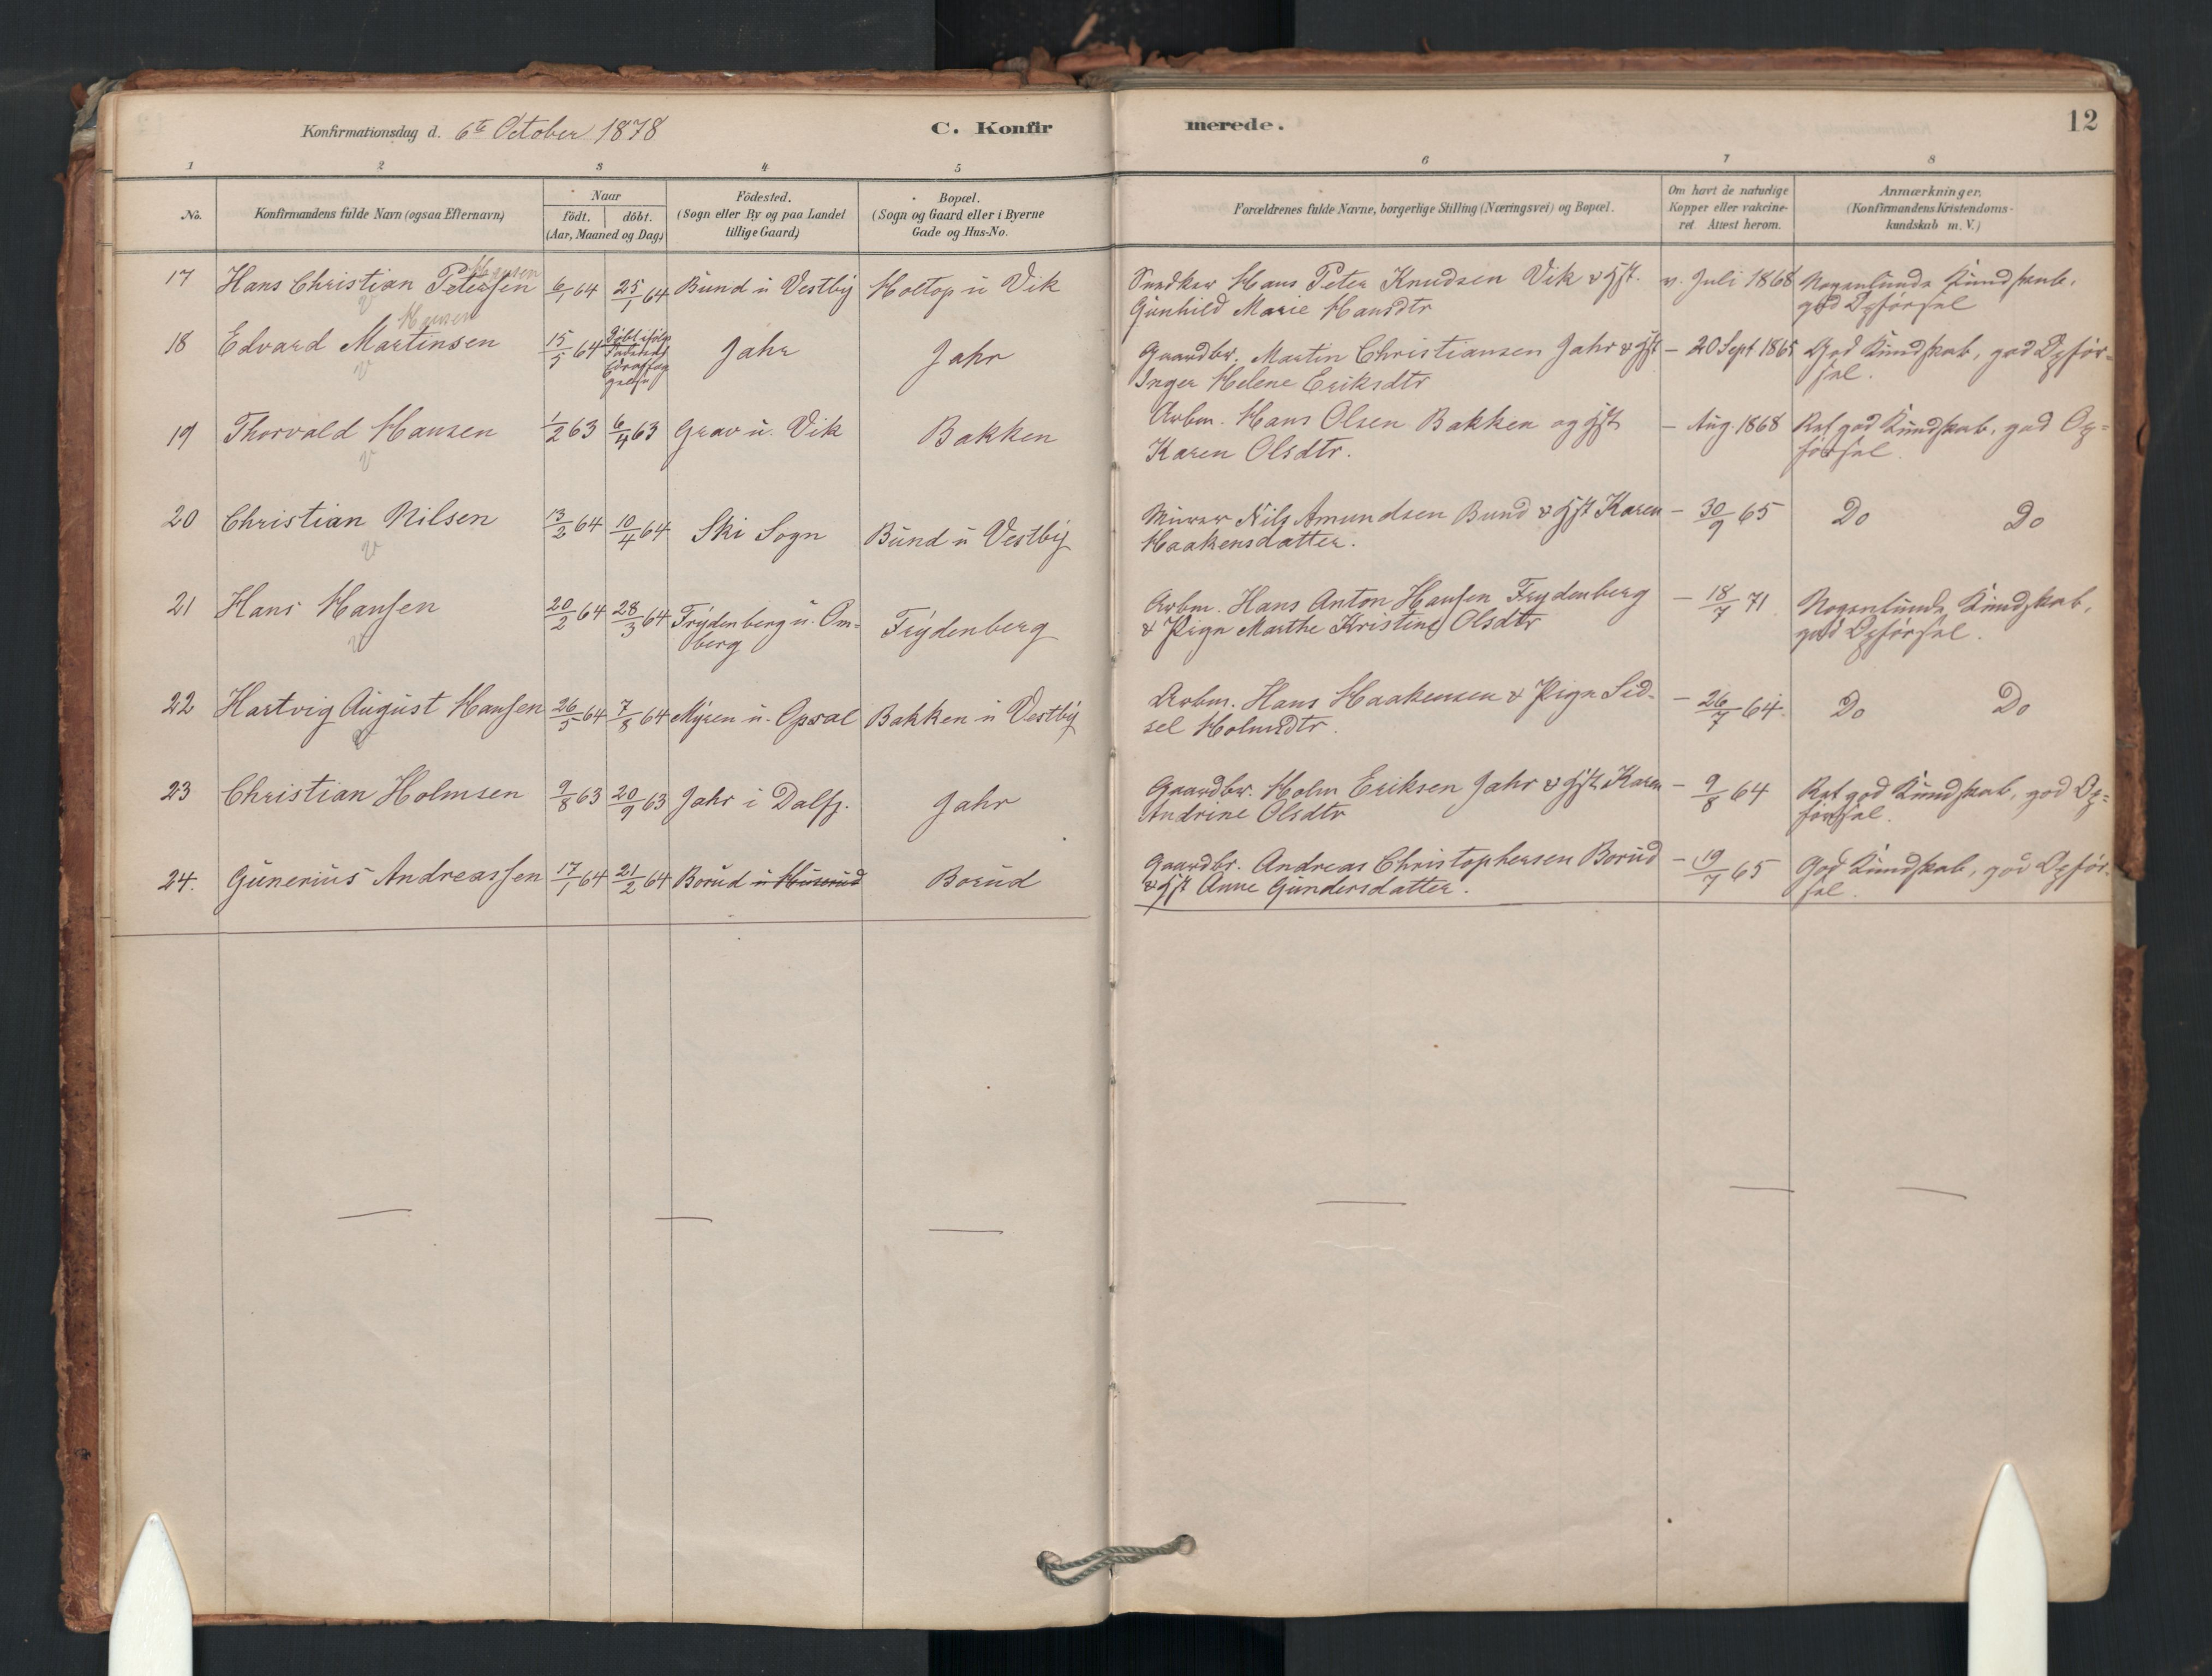 Konfirmationsdag d. 6te October 1878
C. Konfirmerede.
12
1 2 3 4 5 6 7 8
No.
Konfirmandens fulde Navn (ogsaa Efternavn)
Naar
födt. döbt.
(Aar, Maaned og Dag)
Födested.
(Sogn eller By og paa Landet
tillige Gaard)
Bopæl.
(Sogn og Gaard eller i Byerne
Gade og Hus-No.
Forældrenes fulde Navne, borgerlige Stilling (Næringsvei) og Bopæl.
Om havt de naturlige
Kopper eller vakcine-
ret. Attest herom.
Anmærkninger.
(Konfirmandens Kristendoms-
kundskab m. V.)
Hansen
17 Hans Christian Petersen 6/1 64 25/1 64 Bund u Vestby Holtop u Vik Snedker Hans Peter Knudsen Vik & Hst. v. Juli 1868 Nogenlunde Kundskab,
Gunhild Marie Hansdtr god Opförsel
Hansen
18 Edvard Martinsen 15/5 64 Jahr Jahr Gaardbr. Martin Christiansen Jahr & Hst - 20 Sept 1865 God Kundskab, god Opför-
Inger Helene Eriksdtr sel.
19 Thorvald Hansen 1/2 63 6/4 63 Grav u. Vik Bakken Arbm. Hans Olsen Bakken og Hst - Aug. 1868 Ret god Kundskab, god Op=
Karen Olsdtr. försel.
20 Christian Nilsen 13/2 64 10/4 64 Ski Sogn Bund u Vestby Murer Nils Amundsen Bund & Hst Karen - 30/9 65 Do Do
Haakensdatter.
21 Hans Hansen 20/2 64 28/3 64 Frydenberg u. Om- Frydenberg Arbm. Hans Anton Hansen Frydenberg - 18/7 71 Nogenlunde Kundskab,
berg & Pige Marthe Kristine Olsdtr god Opförsel.
22 Hartvig August Hansen 26/5 64 7/8 64 Myren u. Opsal Bakken u Vestby Arbm. Hans Haakensen & Pige Sid- - 26/7 64. Do Do
sel Holmsdtr.
23 Christian Holmsen 9/8 63 20/9 63 Jahr i Dalss. Jahr Gaardbr. Holm Eriksen Jahr & Hst. Karen - 9/8 64 Ret god Kundskab, god Op=
Andrine Olsdtr försel.
24. Gunerius Andreassen 17/1 64 21/2 64 Borud u Huserud Borud Gaardbr. Andreas Christophersen Borud - 19/7 65 God Kundskab, god Opför-
& Hst Anne Gundersdatter. sel.